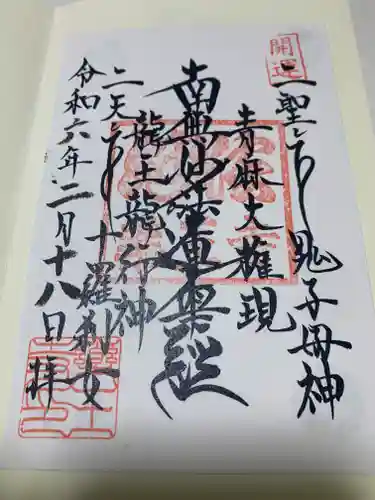 開運
一聖 鬼子母神
青麻大権現
南無妙法蓮華経
龍王龍神
二天 十羅刹女
令和六年二月十八日 拝